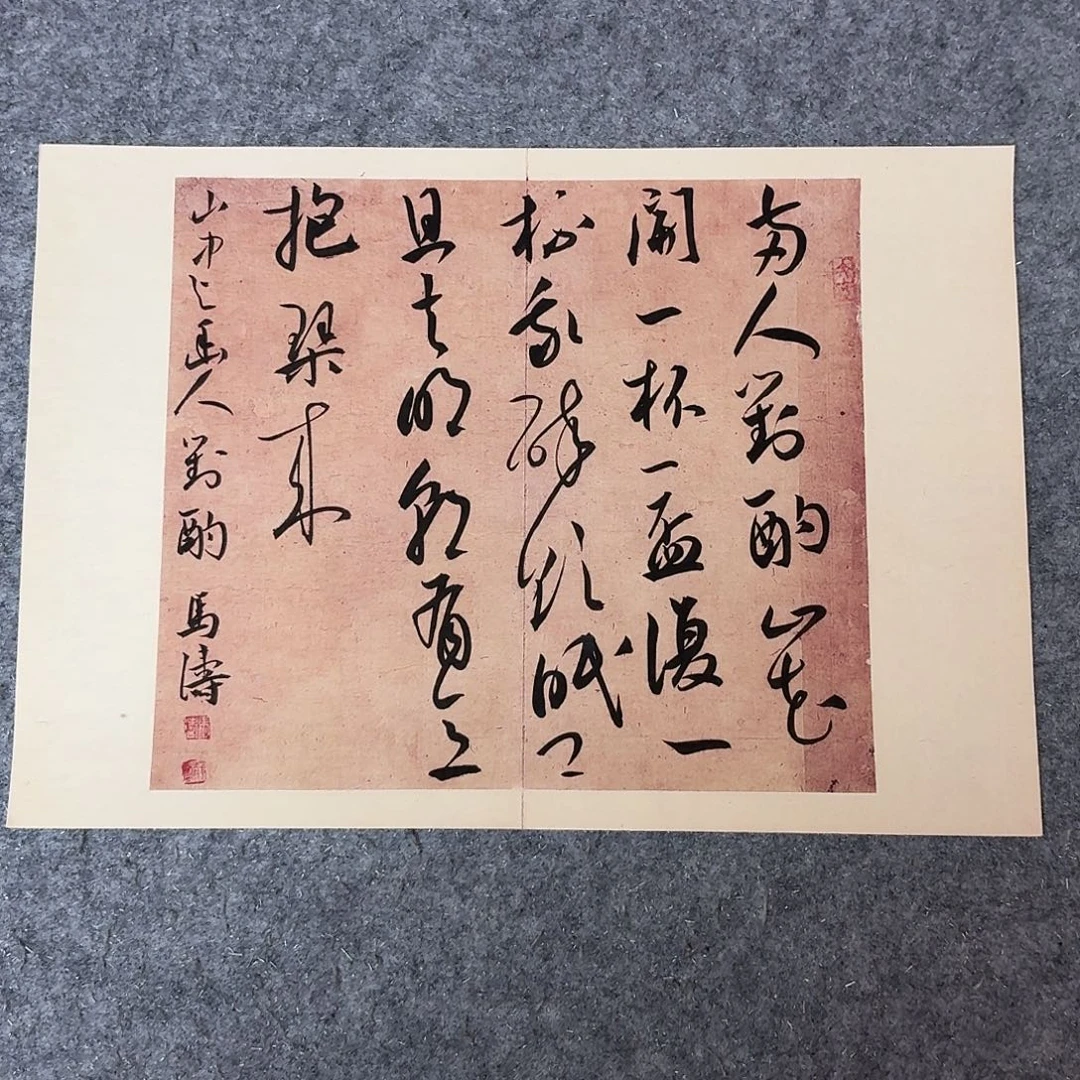 兩人對酌山花
開一杯一盃復一
桮我醉欲眠卿
且去明朝有意
抱琴來
山中与幽人對酌 馬濤